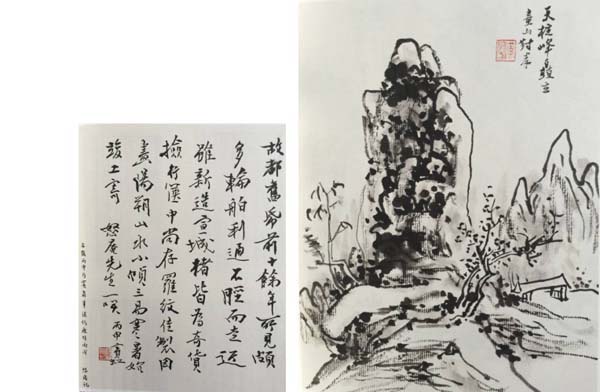 故都舊帋前十餘年所見頗
多輪舶利通不脛而走
雖新造宣城楮皆為奇貨
撿行篋中尚存羅紋佳製因
畫陽朔山水小幀三易寒暑始
竣工寄
怒庵先生一笑 丙申 賓虹
天柱峰矗立
畫山對岸